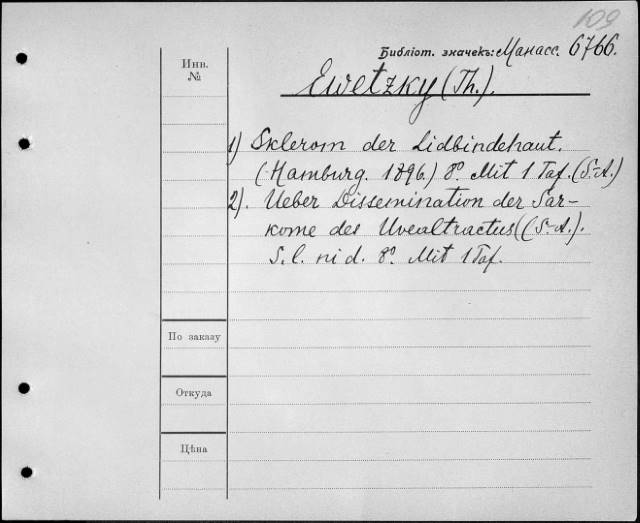 109
Библіот. значекъ: Манасс. 6766.
Инв.
№
Ewetzky (Th.).
1) Sklerom der Lidbindehaut.
(Hamburg. 1896.) 8º. Mit 1 Taf. (S.-A.)
2). Ueber Dissemination der Sar-
kome des Uvealtractus((S.-A.).
S. l. ni d. 8º. Mit 1 Taf.
По заказу
Откуда
Цѣна